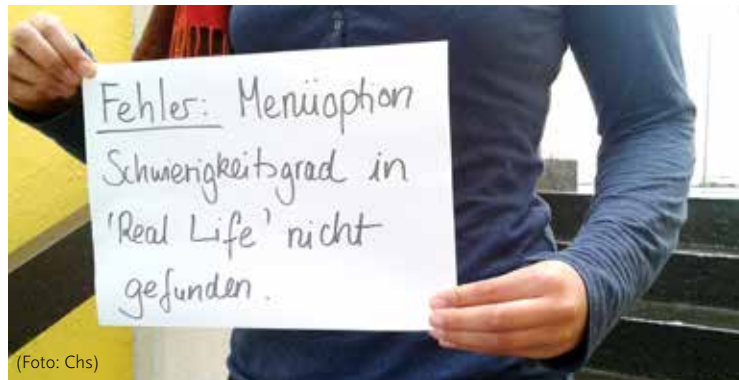 Fehler: Menüoption
Schwierigkeitsgrad in
'Real Life' nicht
gefunden.
(Foto: Chs)